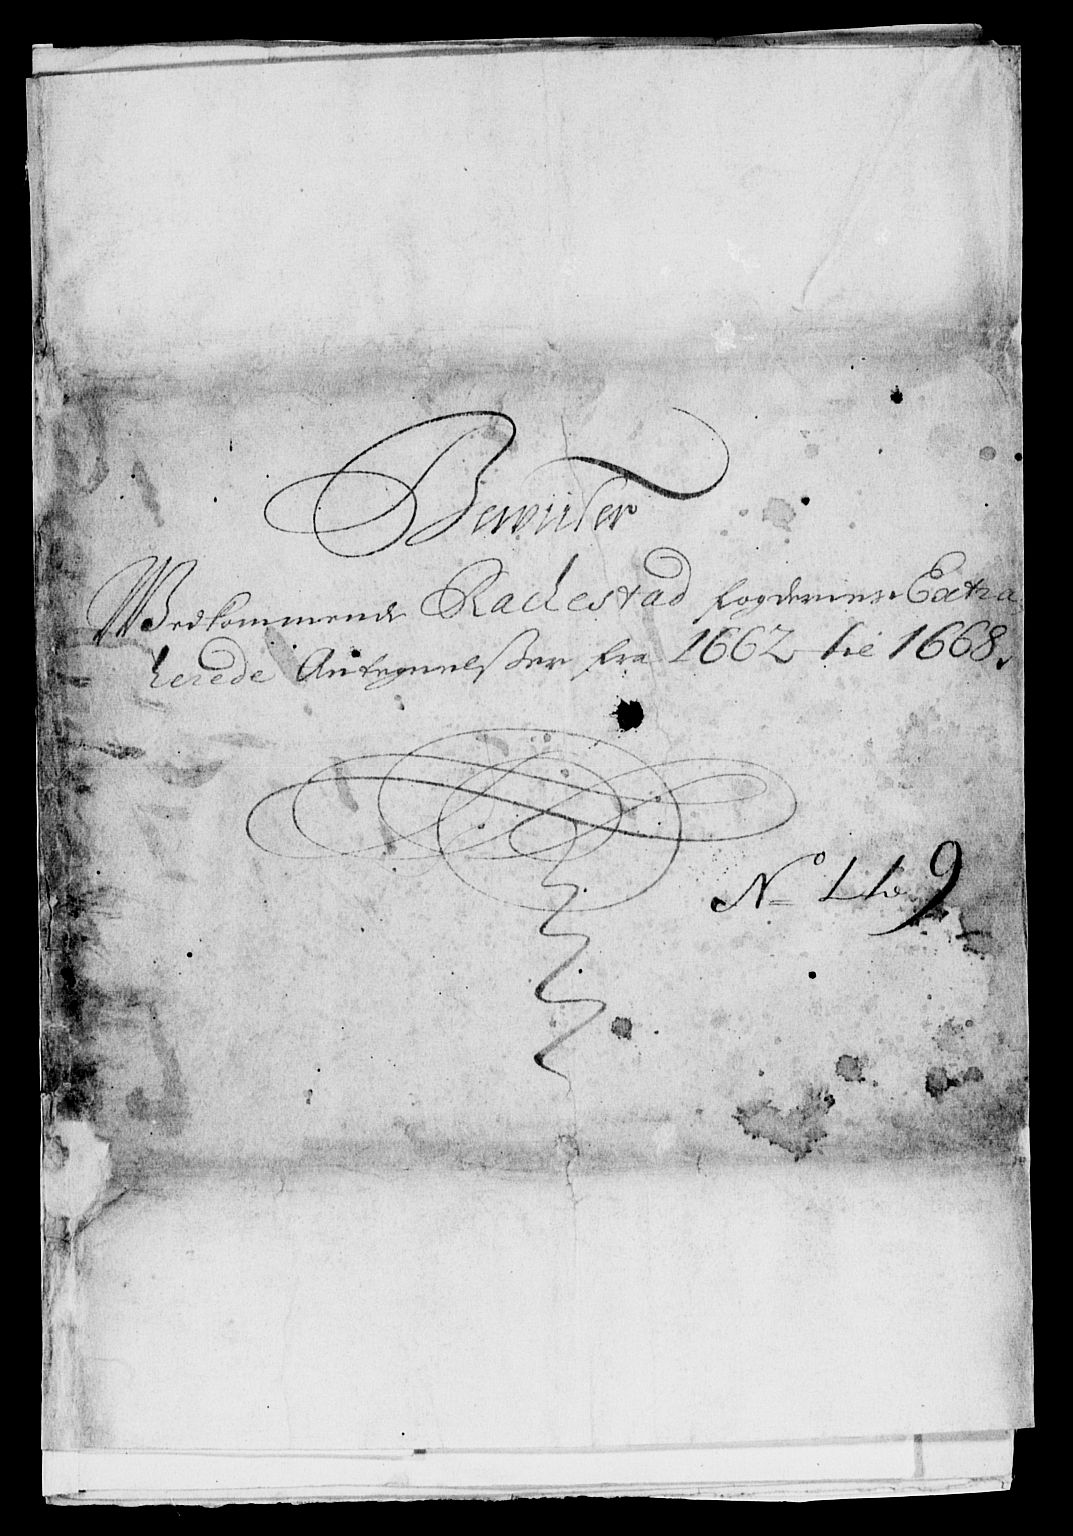 Beviiser
Wedkommende Rachestad fogderies Extra
herede Antegnelsser fra 1662 til 1668.
No
9